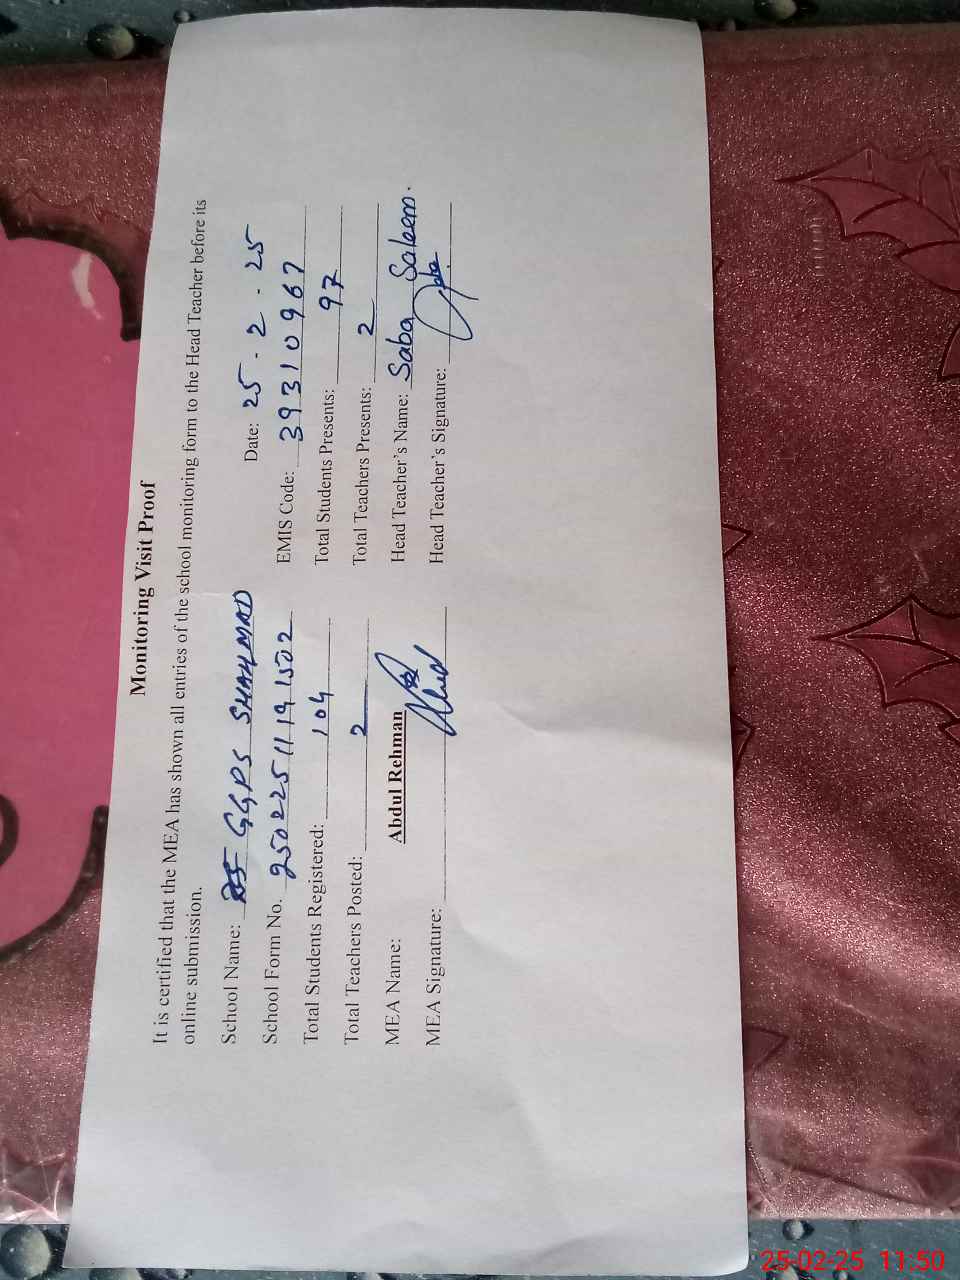 Monitoring Visit Proof
It is certified that the MEA has shown all entries of the school monitoring form to the Head Teacher before its
online submission.
School Name: GGPS SHAHMAD Date: 25-2-25
School Form No. 250225111941502 EMIS Code: 39310967
Total Students Registered: 104 Total Students Presents: 97
Total Teachers Posted: 2 Total Teachers Presents: 2
MEA Name: Abdul Rehman Head Teacher's Name: Saba Saleem.
MEA Signature: Head Teacher's Signature:
25-02-25 11:50